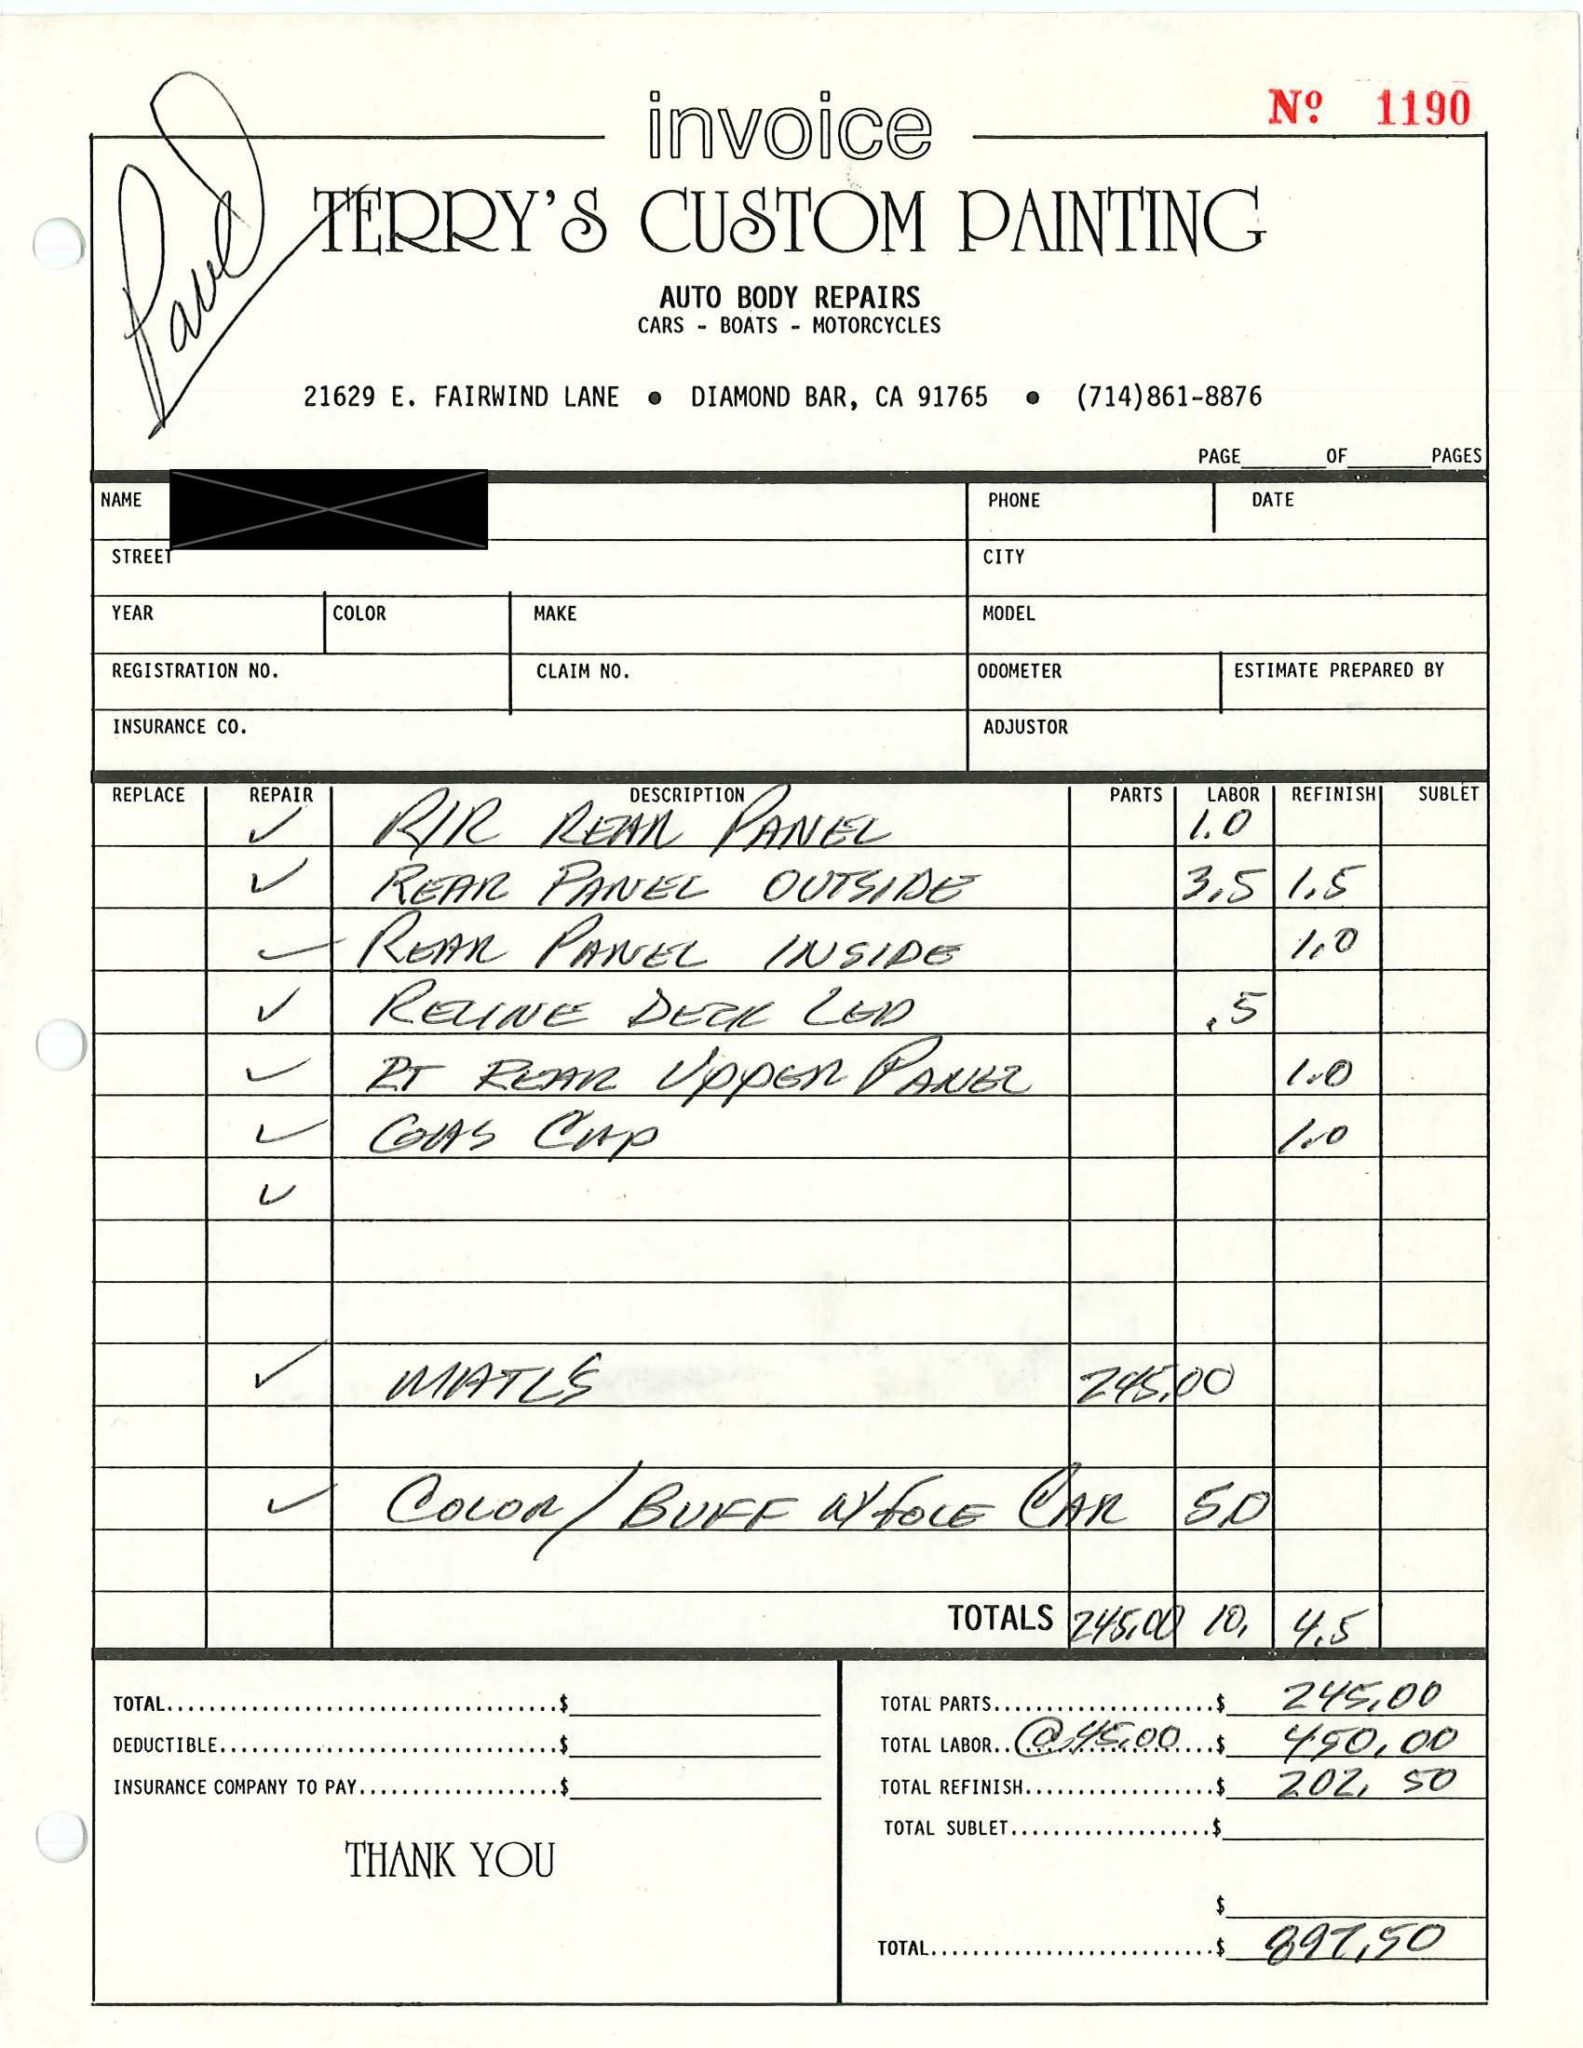 invoice
Nº 1190
Paid
TERRY'S CUSTOM PAINTING
AUTO BODY REPAIRS
CARS - BOATS - MOTORCYCLES
21629 E. FAIRWIND LANE • DIAMOND BAR, CA 91765 • (714)861-8876
PAGE______OF______PAGES
NAME PHONE DATE
STREET CITY
YEAR COLOR MAKE MODEL
REGISTRATION NO. CLAIM NO. ODOMETER ESTIMATE PREPARED BY
INSURANCE CO. ADJUSTOR
REPLACE REPAIR DESCRIPTION PARTS LABOR REFINISH SUBLET
✓ R/R REAR PANEL 1.0
✓ REAR PANEL OUTSIDE 3.5 1.5
✓ REAR PANEL INSIDE 1.0
✓ RELINE DECK LED .5
✓ RT REAR UPPER PANEL 1.0
✓ GAS CAP 1.0
✓
✓ MATLS 245.00
✓ COLOR/BUFF WHOLE CAR 5.0
TOTALS 245.00 10. 4.5
TOTAL.....................................$
DEDUCTIBLE................................$
INSURANCE COMPANY TO PAY...................$
THANK YOU
TOTAL PARTS.....................$ 245.00
TOTAL LABOR..@45.00...$ 450.00
TOTAL REFINISH..................$ 202.50
TOTAL SUBLET...................$
$
TOTAL...........................$ 897.50